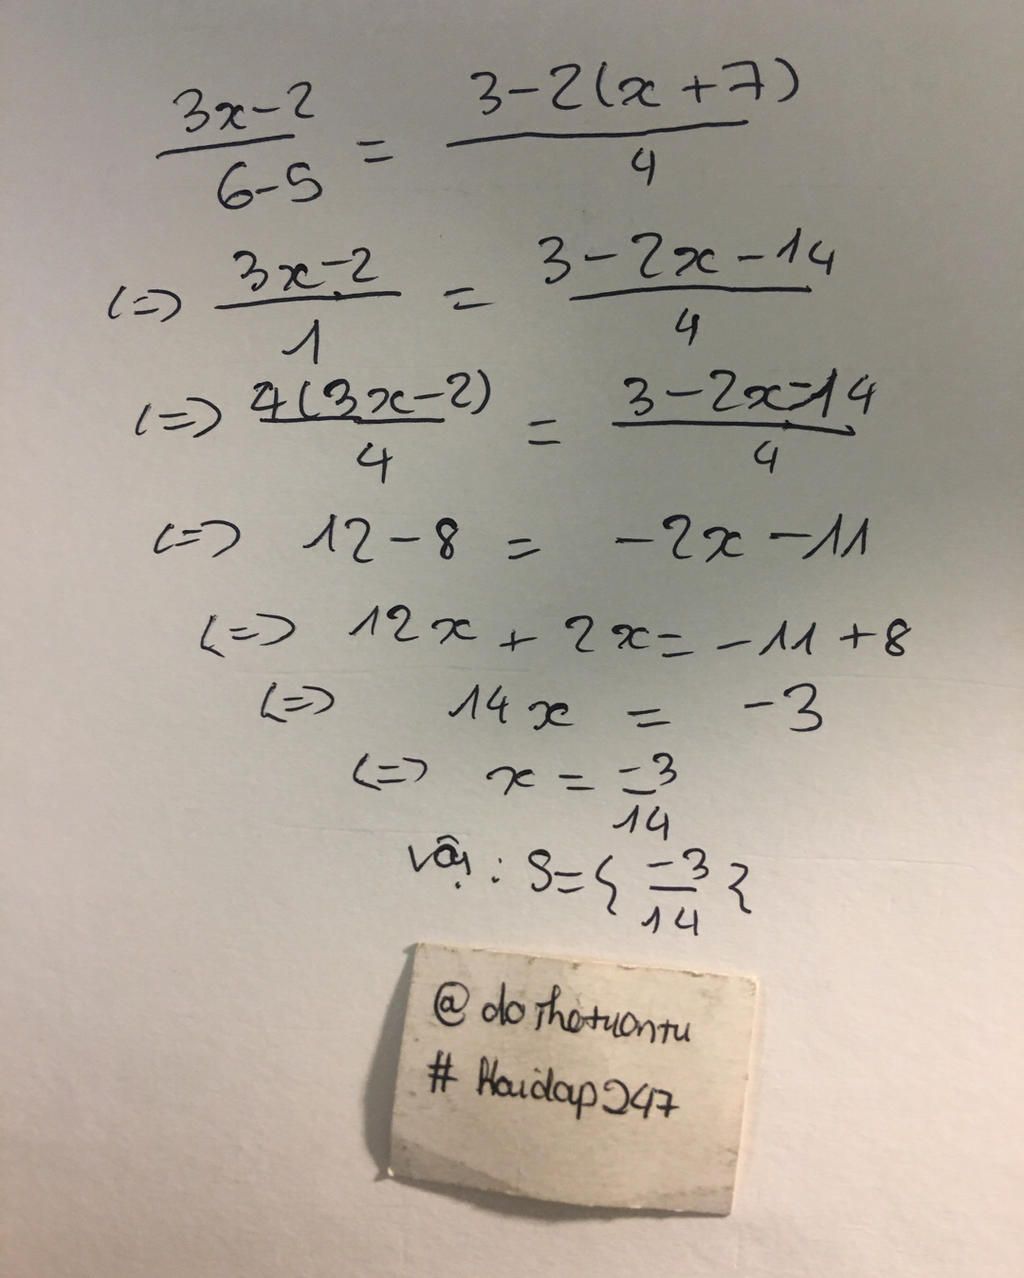 3x-2 / 6-5 = 3-2(x+7) / 4
(=) 3x-2 / 1 = 3-2x-14 / 4
(=) 4(3x-2) / 4 = 3-2x-14 / 4
(=) 12-8 = -2x-11
(=) 12x + 2x = -11+8
(=) 14x = -3
(=) x = -3 / 14
Vậy : S={ -3 / 14 }
@dothetuantu
# Hoidap247